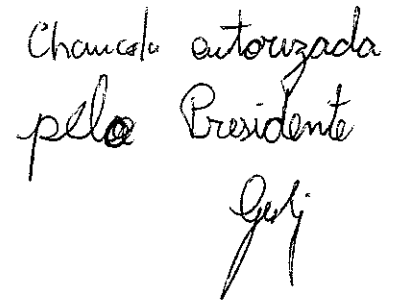 Chancela autorizada
pelo Presidente